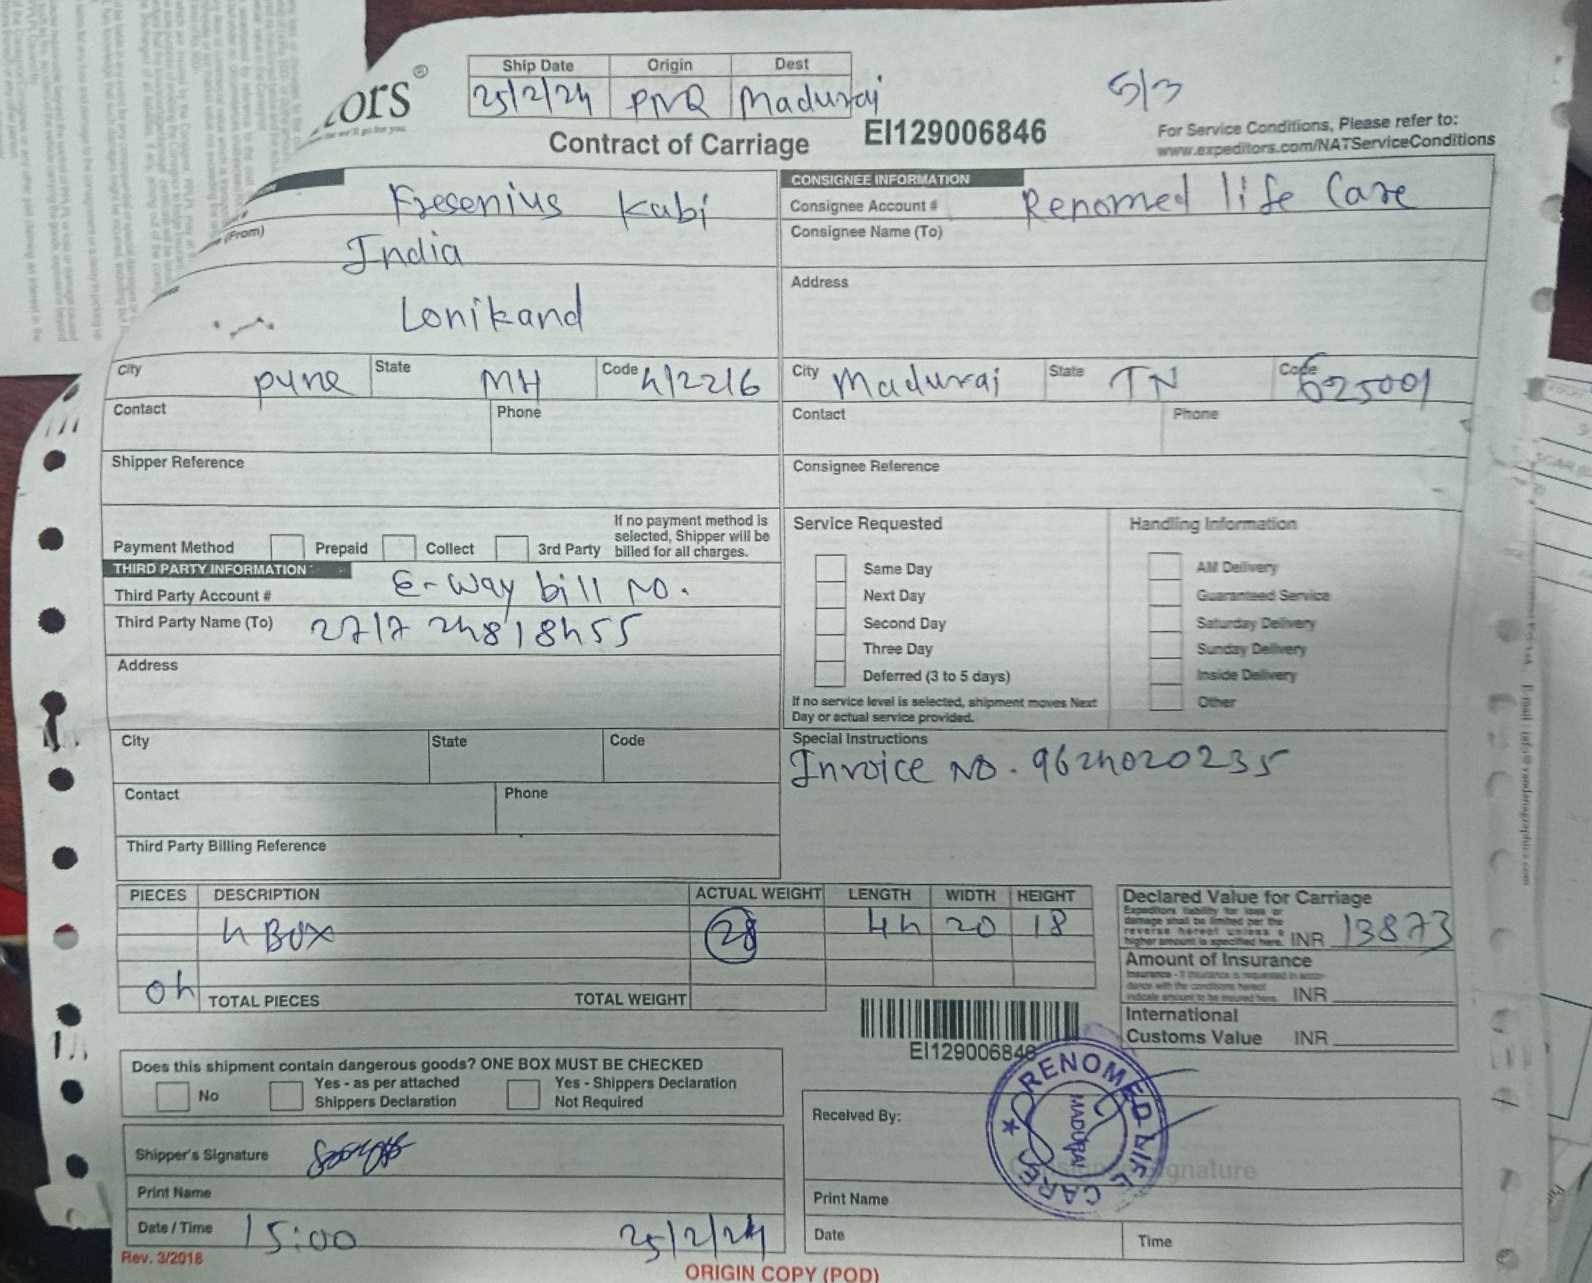 Ship Date Origin Dest
25/2/24 PNQ Madurai
5/3
tors®
Contract of Carriage EI129006846
For Service Conditions, Please refer to:
www.expeditors.com/NATServiceConditions
Fresenius Kabi
(From)
India
Lonikand
City pune State MH Code 412216
Contact Phone
Shipper Reference
Payment Method Prepaid Collect 3rd Party
If no payment method is
selected, Shipper will be
billed for all charges.
CONSIGNEE INFORMATION
Consignee Account # Renomed life Care
Consignee Name (To)
Address
City Madurai State TN Code 625001
Contact Phone
Consignee Reference
THIRD PARTY INFORMATION
Third Party Account # E-Way bill No.
Third Party Name (To) 2717 24818455
Address
City State Code
Contact Phone
Third Party Billing Reference
Service Requested
Same Day
Next Day
Second Day
Three Day
Deferred (3 to 5 days)
If no service level is selected, shipment moves Next
Day or actual service provided.
Handling Information
AM Delivery
Guaranteed Service
Saturday Delivery
Sunday Delivery
Inside Delivery
Other
Special Instructions
Invoice No. 9624020235
PIECES DESCRIPTION ACTUAL WEIGHT LENGTH WIDTH HEIGHT
4 BOX 28 44 20 18
04 TOTAL PIECES TOTAL WEIGHT
Declared Value for Carriage
Expeditors liability for loss or
damage shall be limited per the
reverse hereof unless a
higher amount is specified here. INR 13873
Amount of Insurance
INR
International
Customs Value INR
EI129006846
Does this shipment contain dangerous goods? ONE BOX MUST BE CHECKED
No
Yes - as per attached
Shippers Declaration
Yes - Shippers Declaration
Not Required
Shipper's Signature
Print Name
Date / Time 15:00 25/2/24
Received By:
RENOMED LIFE CARE
MADURAI
Print Name
Date Time
Rev. 3/2018
ORIGIN COPY (POD)